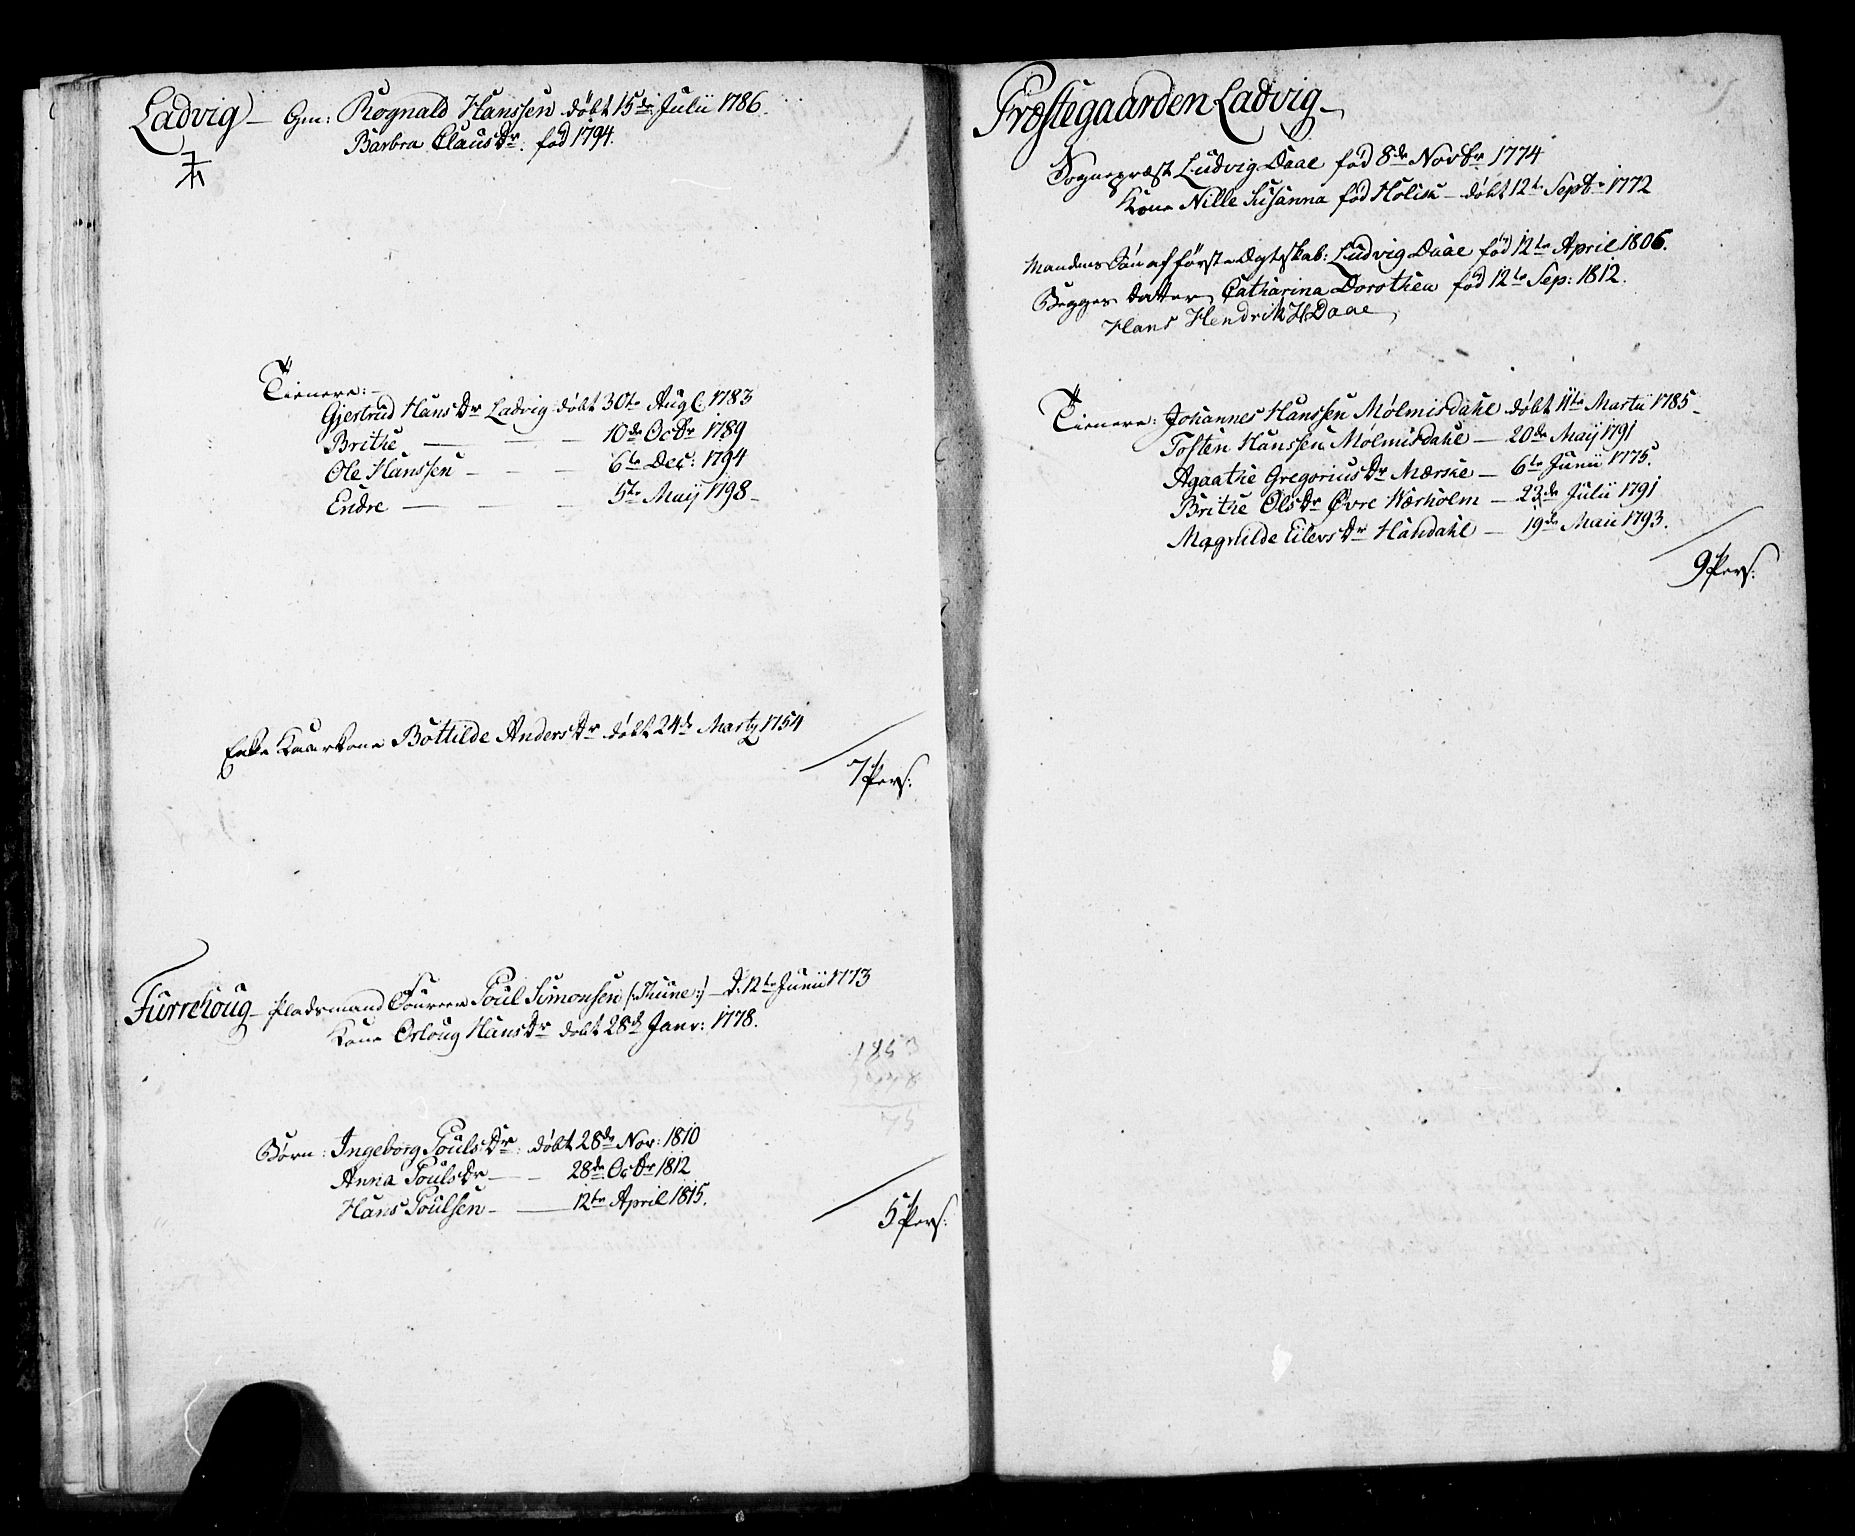 Ladvig – Gm: Rognald Hanssen døbt 15de Julii 1786.
Barbra Clausdr. fød 1794.
Tienere: –
Gjertrud Hansdr Ladvig døbt 30te Aug: 1783
Brithe — — — 10de Octbr 1789
Ole Hanssen – — — 6te Dec: 1794
Endre — — — 5te Maij 1798 –
Enke Kaarkone Bottilde Andersdr døbt 24de Marty 1754
7 Pers:
Furrehoug – Pladsmand Poul Simonsen (:Thune:) – D. 12te Junii 1773
Kone Orloug Hansdr døbt 28de Janr: 1778.
1853
Børn: Ingeborg Poulsdr: døbt 28de Nov: 1810
Anna Poulsdr — – 28de Octbr 1812
Hans Poulsen – — 12te April 1815.
5 Pers:
Præstegaarden Ladvig –
Sognepræst Ludvig Daae fød 8de Novbr 1774
Kone Nille Susanna fød Holck – døbt 12te Septbr 1772
Mandens Søn af første Ægteskab: Ludvig Daae fød 12te April 1806.
Begges Datter Catharina Dorothea fød 12te Sep: 1812.
Hans Hendrik Daae
Tienere: Johannes Hanssen Mølmisdahl døbt 11te Martii 1785 –
Tosten Hanssen Mølmisdahl — 20de Maij 1791
Agaathe Gregoriusdr Mærske – 6te Junii 1775.
Brithe Olsdr Øvre Wærholm – 23de Julii 1791
Magnilde Eilersdr Handahl — 19de Maii 1793.
9 Pers: